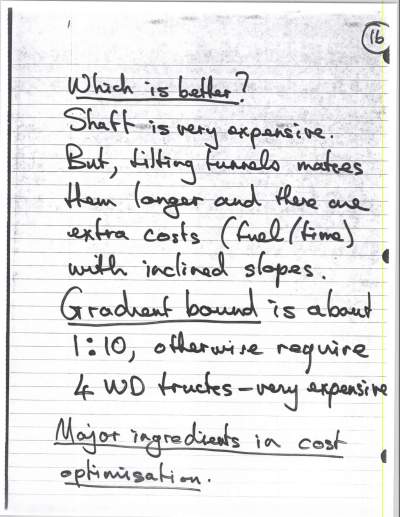 16
Which is better?
Shaft is very expensive.
But, tilting tunnels makes
them longer and there are
extra costs (fuel/time)
with inclined slopes.
Gradient bound is about
1:10, otherwise require
4 WD trucks - very expensive
Major ingredients in cost
optimisation.